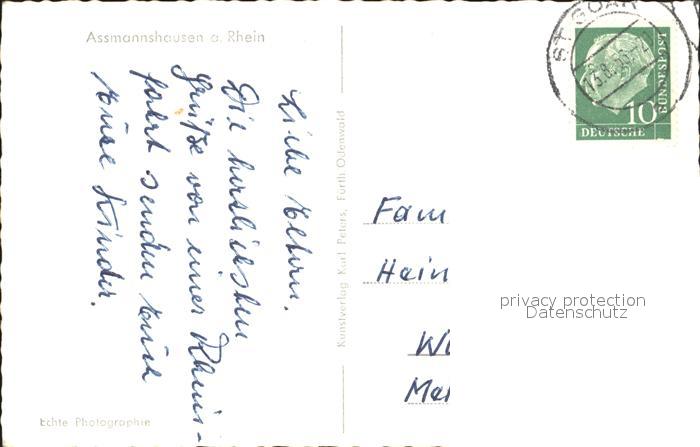 Assmannshausen a. Rhein
Liebe Eltern.
Die herzlichsten
Grüße von einer Rhein-
fahrt senden Euch
Eure Kinder.
Echte Photographie
Kunstverlag Karl Peters, Fürth Odenwald
ST. GOAR
13.8.56
10
DEUTSCHE
BUNDESPOST
Fam
Hein
Wi
privacy protection
Datenschutz